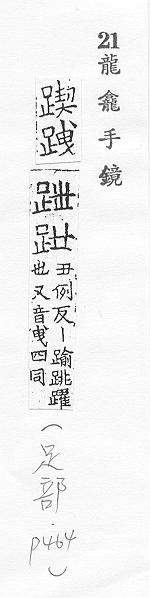 21 龍龕手鏡
跩
跇
丑例反丨踰跳躍
也又音曳四同
(足部.p464)